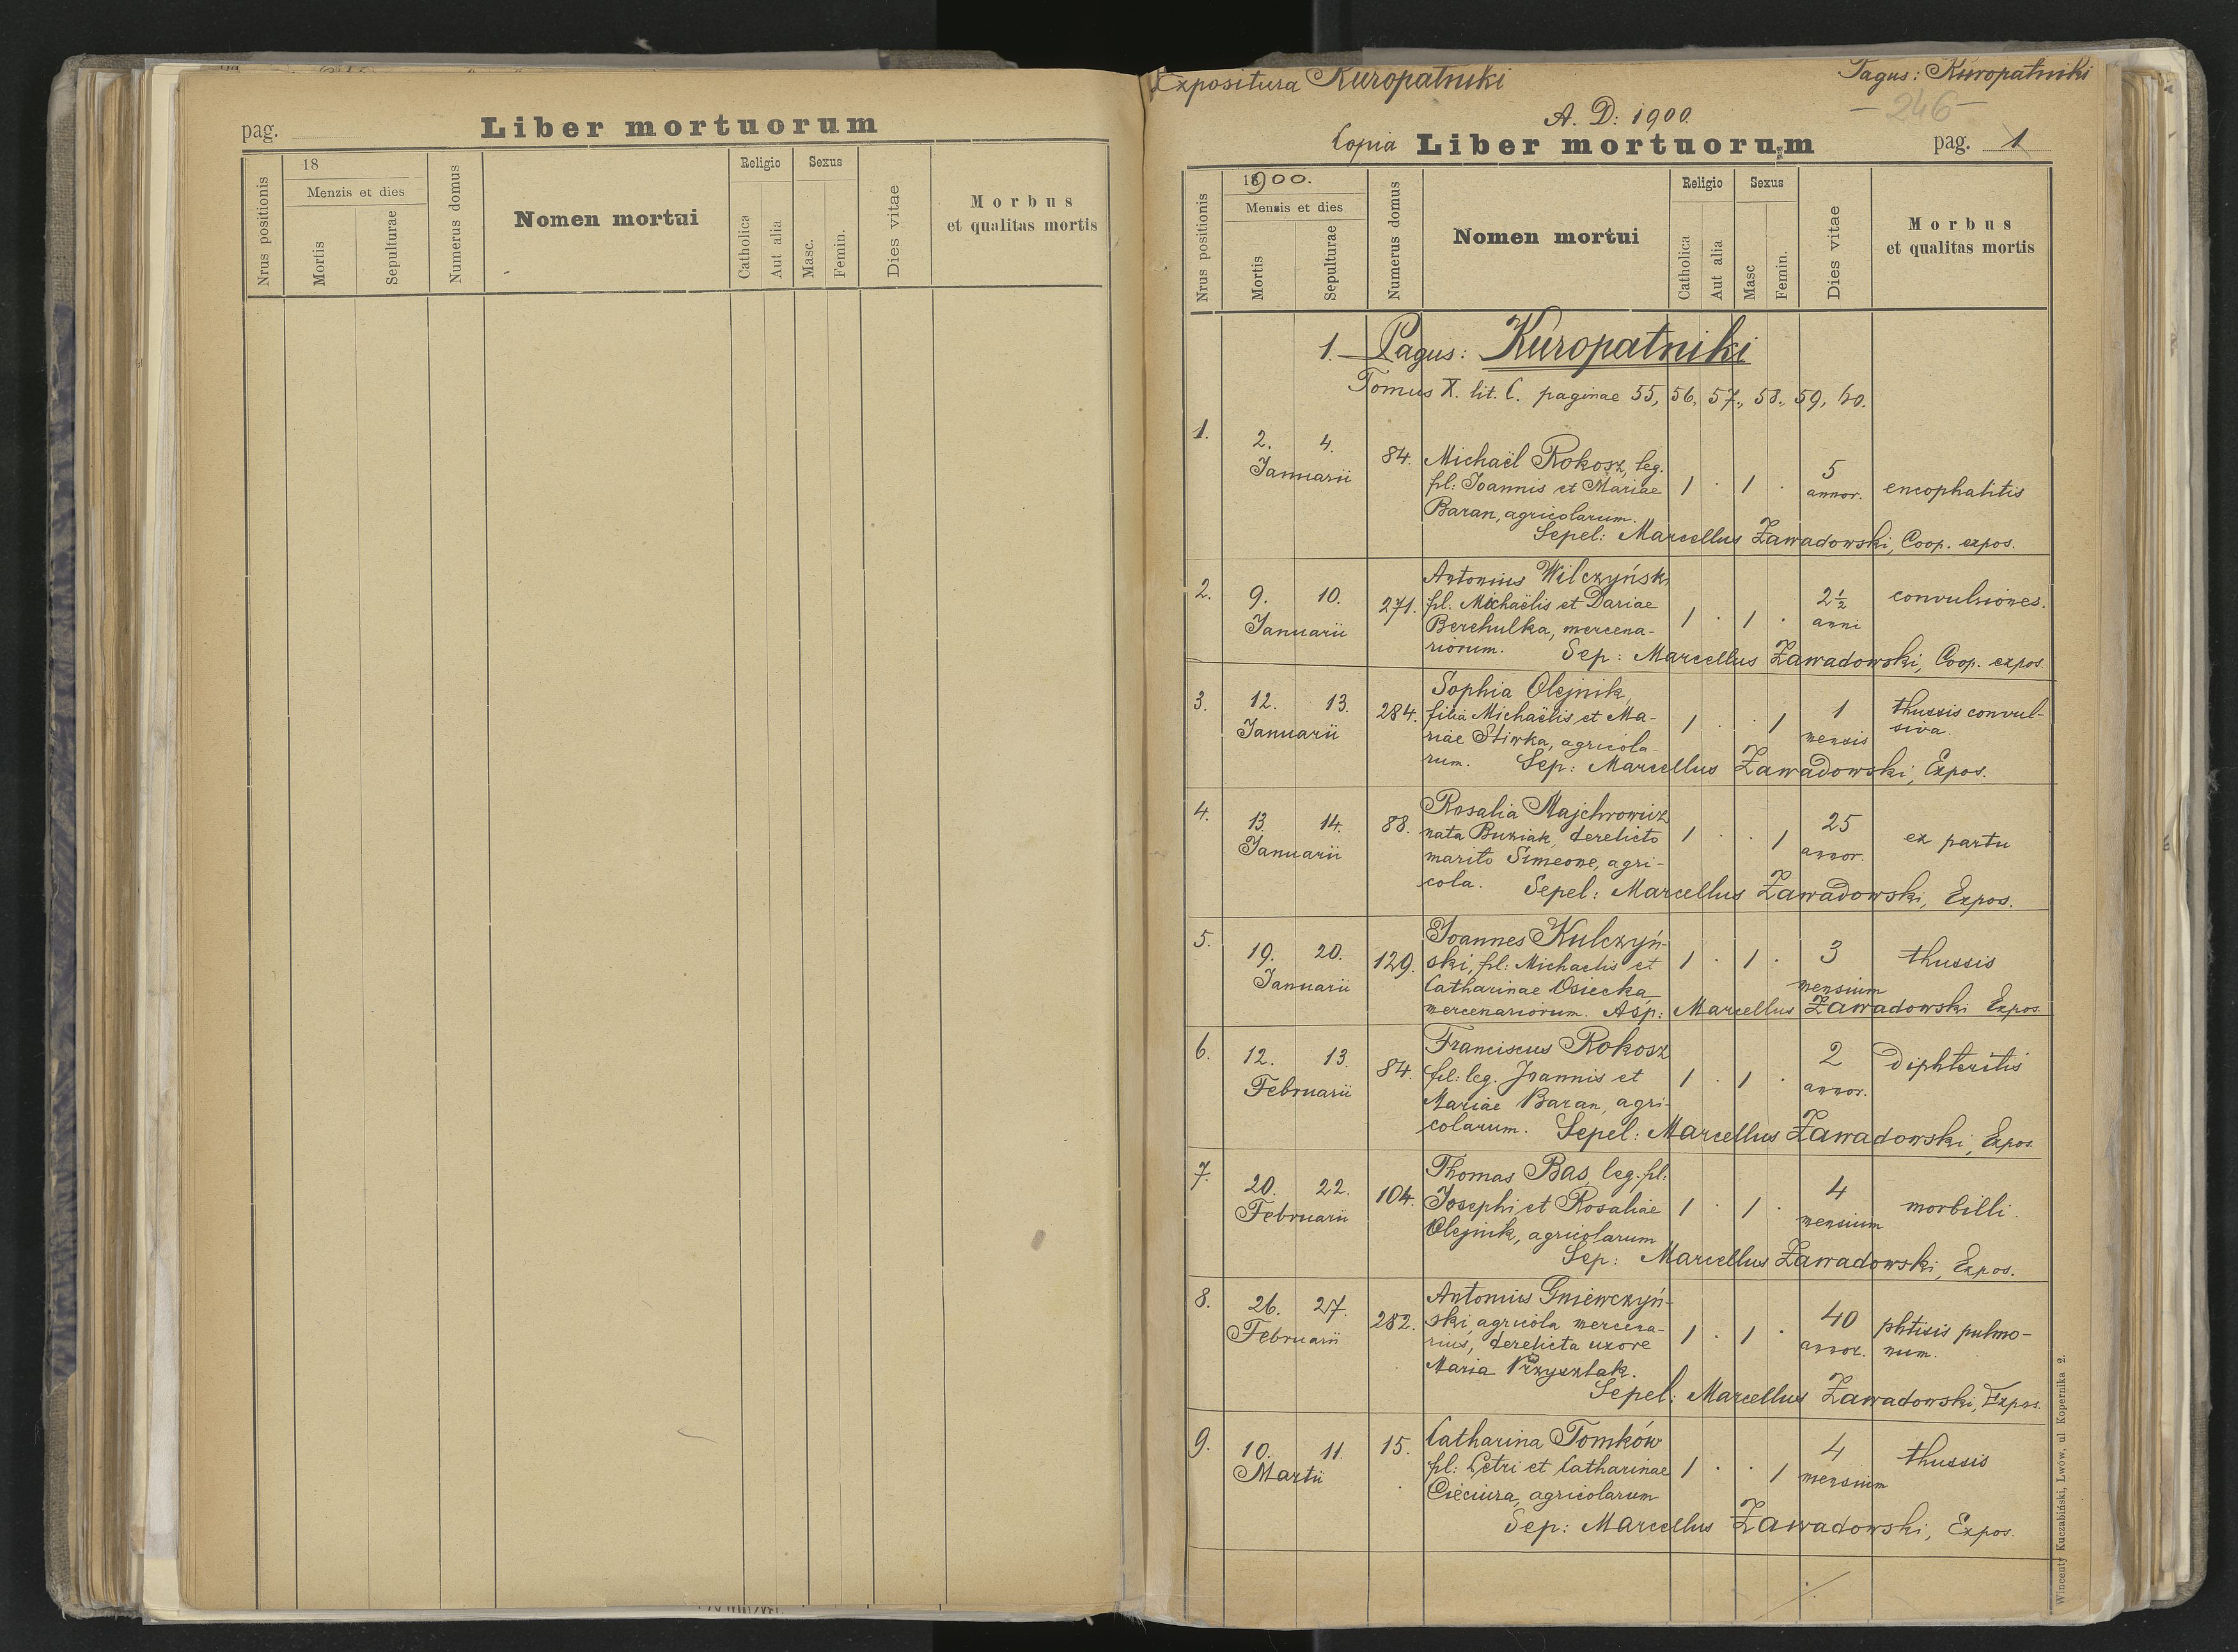 pag.
Liber mortuorum
Nrus positionis
18
Menzis et dies
Mortis
Sepulturae
Numerus domus
Nomen mortui
Religio
Catholica
Aut alia
Sexus
Masc.
Femin.
Dies vitae
Morbus
et qualitas mortis
Expositura Kuropatniki
Pagus: Kuropatniki
A. D: 1900.
- 246 -
Copia Liber mortuorum
pag. 1
Nrus positionis
18900.
Mensis et dies
Mortis
Sepulturae
Numerus domus
Nomen mortui
Religio
Catholica
Aut alia
Sexus
Masc
Femin.
Dies vitae
Morbus
et qualitas mortis
1. Pagus: Kuropatniki
Tomus X. lit. C. paginae 55, 56, 57, 58, 59, 60.
1. 2. 4. Januarii 84. Michaël Rokosz, leg.
fil: Joannis et Mariae 1 . 1 . 5 annor. encophalitis
Baran, agricolarum.
Sepel: Marcellus Zawadowski, Coop. expos.
2. 9. 10. Januarii 271. Antonius Wilczyński
fil: Michaëlis et Dariae 1 . 1 . 2½ anni convulsiones.
Berehulka, mercena-
riorum. Sep: Marcellus Zawadowski, Coop. expos.
3. 12. 13. Januarii 284. Sophia Olejnik,
filia Michaëlis et Ma- 1 . . 1 1 mensis thussis convul-
siva.
riae Stiwka, agricola-
rum. Sep: Marcellus Zawadowski, Expos.
4. 13. 14. Januarii 88. Rosalia Majchrowicz
nata Buziak, derelicto 1 . . 1 25 annor. ex partu
marito Simeone, agri-
cola. Sepel: Marcellus Zawadowski, Expos.
5. 19. 20. Januarii 129. Joannes Kulczyń-
ski, fil: Michaelis et 1 . 1 . 3 mensium thussis
Catharinae Osiecka,
mercenariorum. Asp: Marcellus Zawadowski Expos.
6. 12. 13. Februarii 84. Franciscus Rokosz
fil: leg. Joannis et 1 . 1 . 2 annor. Diphteritis
Mariae Baran, agri-
colarum. Sepel: Marcellus Zawadowski, Expos.
7. 20. 22. Februarii 104. Thomas Bas, leg. fil:
Josephi et Rosaliae 1 . 1 . 4 mensium morbilli.
Olejnik, agricolarum
Sep: Marcellus Zawadowski, Expos.
8. 26. 27. Februarii 282. Antonius Gniewczyń-
ski, agricola mercena- 1 . 1 . 40 annor. phtisis pulmo-
num.
rius, derelicta uxore
Maria
Sepel: Marcellus Zawadowski, Expos.
9. 10. 11. Martii 15. Catharina Tomków
fil: Petri et Catharinae 1 . . 1 4 mensium thussis
Cieciura, agricolarum
Sep: Marcellus Zawadowski, Expos.
Wincenty Kuczabiński, Lwów, ul Kopernika 2.